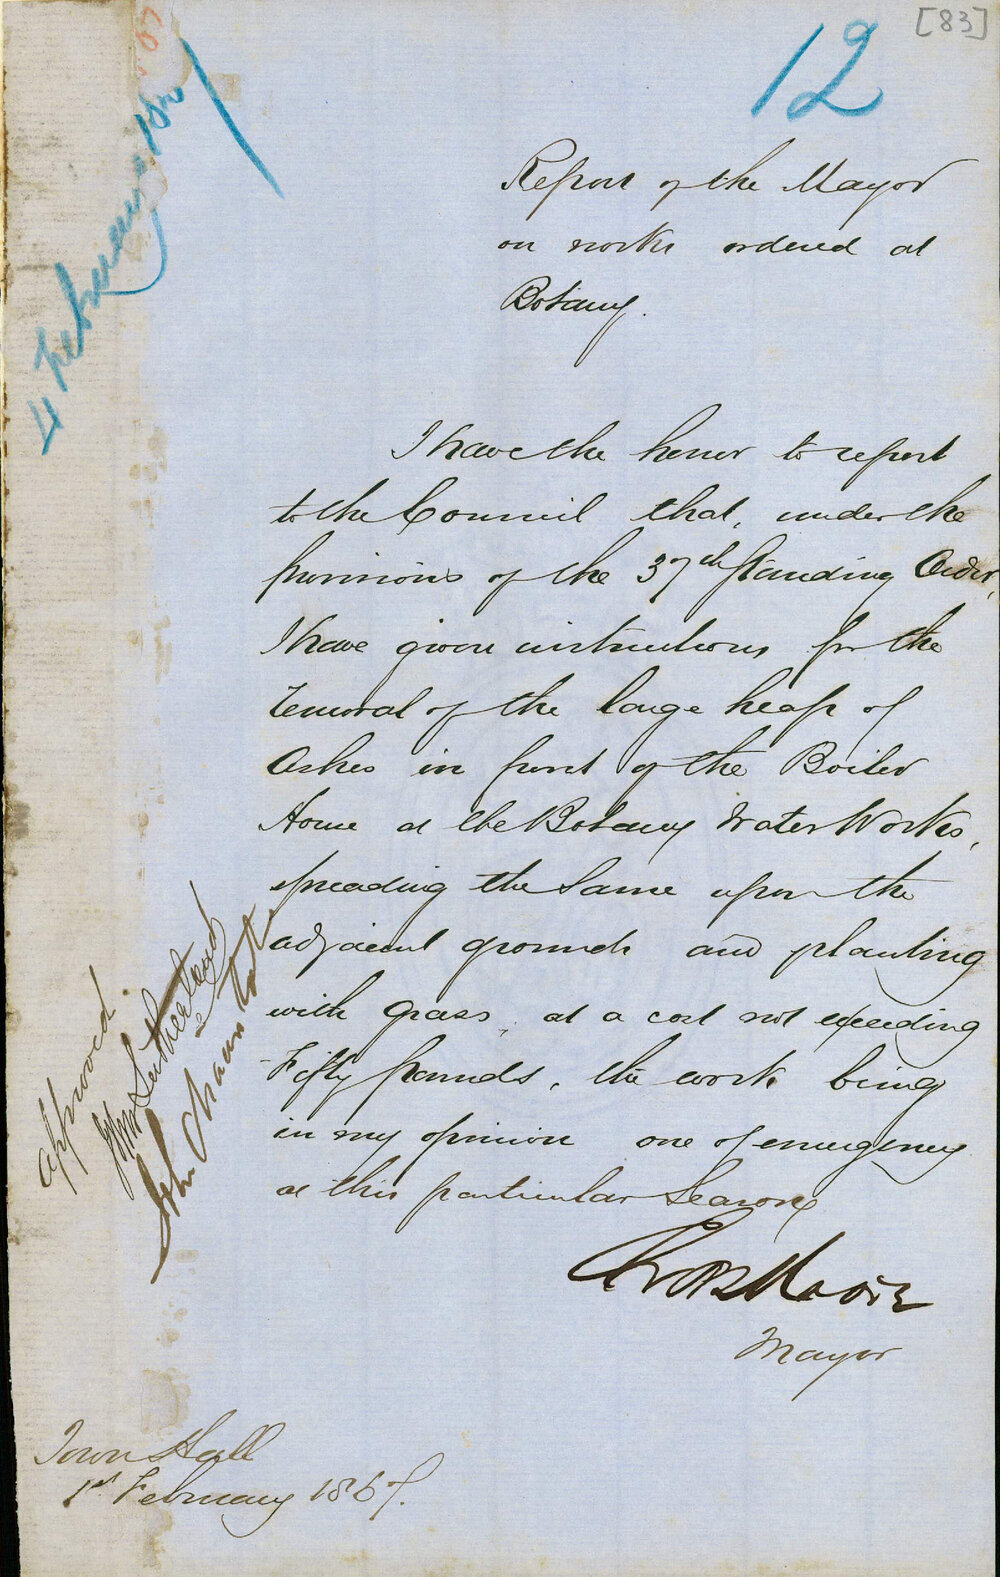 [83]
12
4 February 18
Report of the Mayor
on works ordered at
Botany.
I have the honor to report
to the Council that, under the
provisions of the 37th Standing Order,
I have given instructions for the
removal of the large heap of
Ashes in front of the Boiler
House at the Botany Water Works,
spreading the same upon the
adjacent grounds and planting
with Grass, at a cost not exceeding
Fifty pounds, the work being
in my opinion one of emergency
at this particular Season
Chas Moore
Mayor
Approved.
John Sutherland
John
Town Hall
1st February 1867.